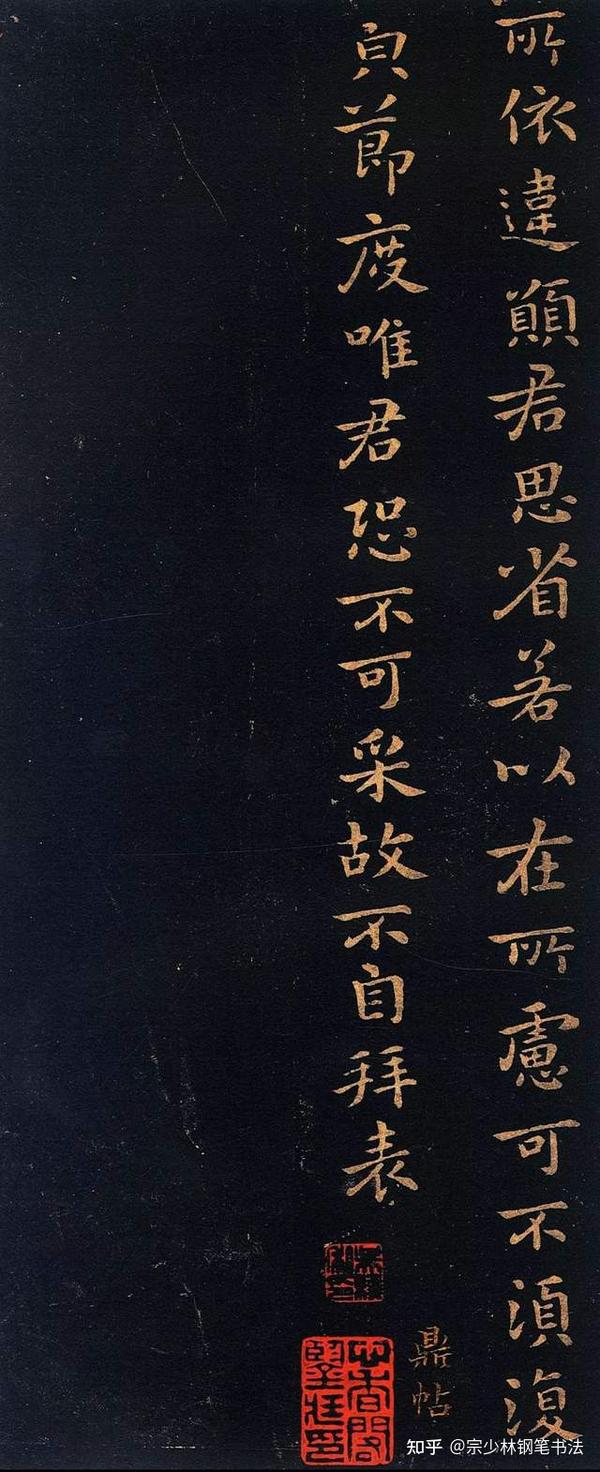 所依違願君思省若以在所慮可不湏復
皃節度唯君恐不可采故不自拜表
鼎帖
知乎 @宗少林钢笔书法